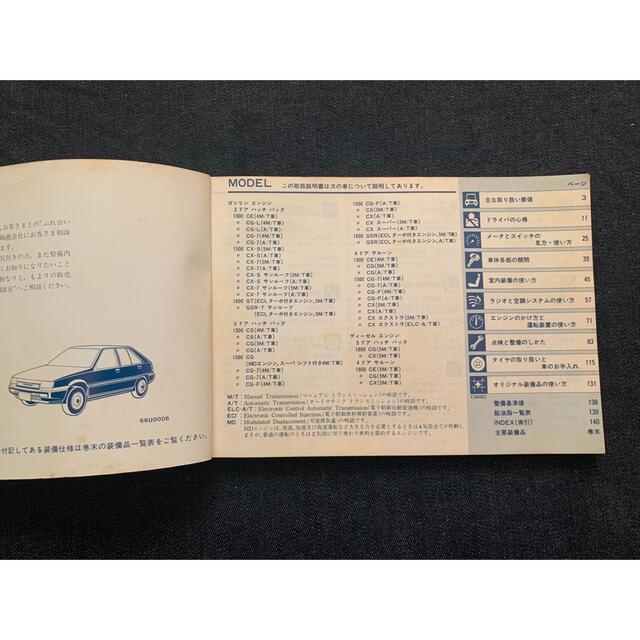 お客さまとの"ふれ合い
販売会社にお客さま相談
ます。
気付きの点、また整備内
くお知りになりたいこと
何なりと、もよりの販売
談室"へご相談ください。
66U0006
付記してある装備仕様は巻末の装備品一覧表をご覧ください。
MODEL この取扱説明書は次の車について説明してあります。
ガソリン エンジン
3ドア ハッチ バック
1300 CE(4M/T車)
〃 CG-L(4M/T車)
〃 CG-L(A/T車)
〃 CG-7(4M/T車)
〃 CG-7(A/T車)
1500 CX-S(5M/T車)
〃 CX-S(A/T車)
〃 CX-7(5M/T車)
〃 CX-7(A/T車)
〃 CX-S サンルーフ(5M/T車)
〃 CX-S サンルーフ(A/T車)
〃 CX-7 サンルーフ(5M/T車)
〃 CX-7 サンルーフ(A/T車)
1600 GT(ECIターボ付きエンジン,5M/T車)
〃 GSR-T サンルーフ
(ECIターボ付きエンジン,5M/T車)
5ドア ハッチ バック
1300 CS(4M/T車)
〃 CS(A/T車)
〃 CG(5M/T車)
〃 CG(A/T車)
1500 CG
(MDエンジン,スーパーシフト付き4M/T車)
〃 CG-7(4M/T車)
〃 CG-7(A/T車)
〃 CG-F(4M/T車)
1500 CG-F(A/T車)
〃 CX(5M/T車)
〃 CX(A/T車)
〃 CX スーパー(5M/T車)
〃 CX スーパー(A/T車)
1600 GSR(ECIターボ付きエンジン,5M/T車)
〃 GSR(ECIターボ付きエンジン,A/T車)
4ドア サルーン
1300 CE(4M/T車)
〃 CG(5M/T車)
〃 CG(A/T車)
1500 CG-7(4M/T車)
〃 CG-7(A/T車)
〃 CG-F(4M/T車)
〃 CX(5M/T車)
〃 CX(A/T車)
〃 CX エクストラ(5M/T車)
〃 CX エクストラ(ELC-A/T車)
ディーゼル エンジン
5ドア ハッチ バック
1800 CG(5M/T車)
〃 CX(5M/T車)
4ドア サルーン
1800 CE(5M/T車)
〃 CG(5M/T車)
〃 CX(5M/T車)
M/T：Manual Transmission(マニュアル トランスミッション)の略語です。
A/T：Automatic Transmission(オートマチック トランスミッション)の略語です。
ELC-A/T：Electronic Control Automatic Transmission(電子制御自動変速機)の略語です。
ECI：Electronic Controlled Injection(電子制御燃料噴射装置)の略語です。
MD：Modulated Displacement(可変排気量)の略語です。
MDエンジンは,発進,加速及び高速運転など大きな力を必要とするときは4気筒全てが作動しますが,普通の運転のときは2気筒に切り換わり燃料を節約するエンジンです。
ページ
主な取り扱い要領 3
ドライバの心得 11
メータとスイッチの
見方・使い方 25
車体各部の開閉 39
室内装備の使い方 45
ラジオと空調システムの使い方 57
エンジンのかけ方と
運転装置の使い方 71
点検と整備のしかた 83
タイヤの取り扱いと
車のお手入れ 115
オリジナル装備品の使い方 131
整備基準値 138
給油脂一覧表 139
INDEX(索引) 140
主要装備品 巻末